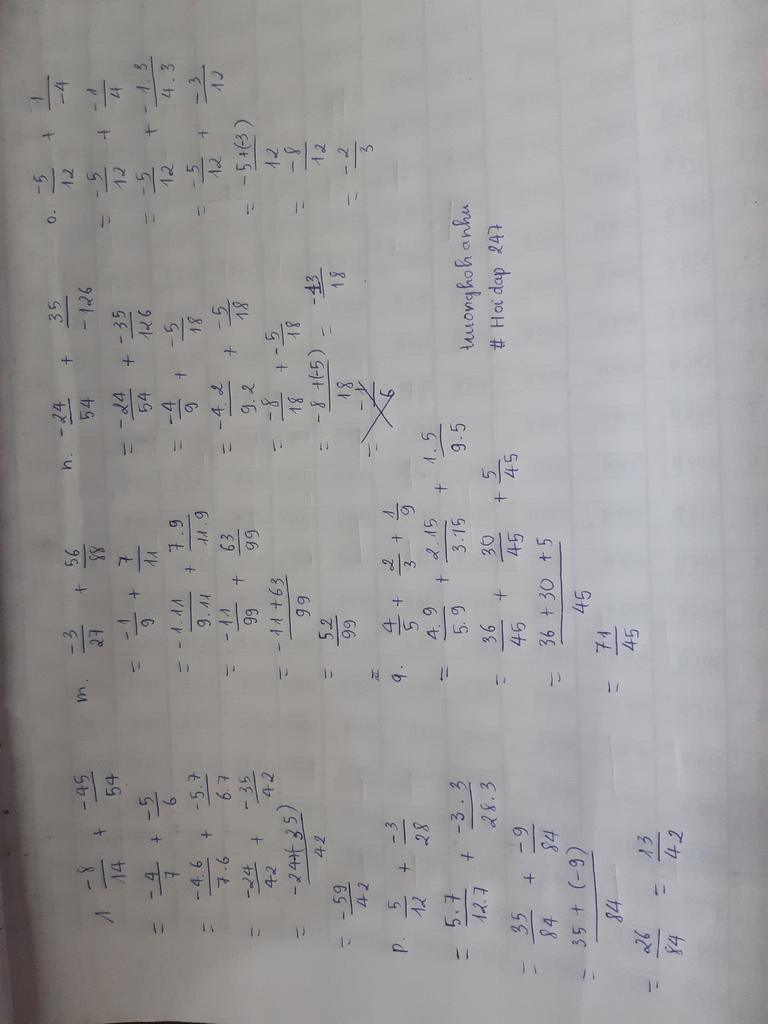 l. -8/14 + -45/54
= -4/7 + -5/6
= -4.6/7.6 + -5.7/6.7
= -24/42 + -35/42
= -24+(-35)/42
= -59/42
m. -3/27 + 56/88
= -1/9 + 7/11
= -1.11/9.11 + 7.9/11.9
= -11/99 + 63/99
= -11+63/99
= 52/99
n. -24/54 + 35/-126
= -24/54 + -35/126
= -4/9 + -5/18
= -4.2/9.2 + -5/18
= -8/18 + -5/18
= -8+(-5)/18 = -13/18
o. -5/12 + 1/-4
= -5/12 + -1/4
= -5/12 + -1.3/4.3
= -5/12 + -3/12
= -5+(-3)/12
= -8/12
= -2/3
p. 5/12 + -3/28
= 5.7/12.7 + -3.3/28.3
= 35/84 + -9/84
= 35+(-9)/84
= 26/84 = 13/42
q. 4/5 + 2/3 + 1/9
= 4.9/5.9 + 2.15/3.15 + 1.5/9.5
= 36/45 + 30/45 + 5/45
= 36+30+5/45
= 71/45
# Hoi dap 247